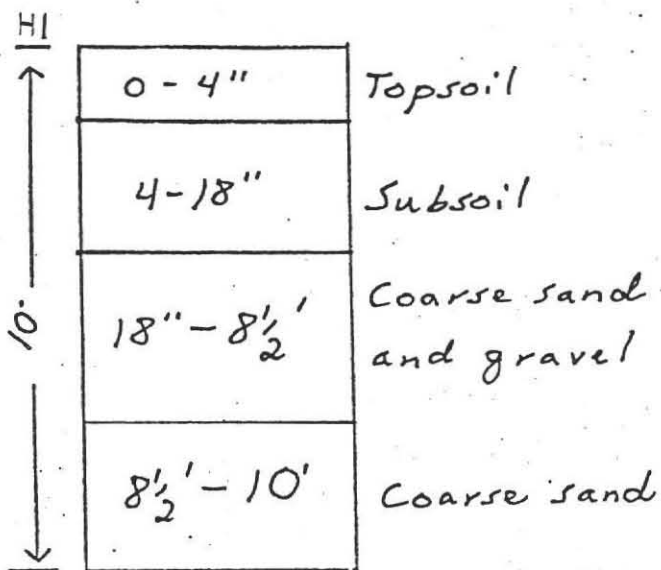 H1
0 - 4" Topsoil
4 - 18" Subsoil
18" - 8½' Coarse sand and gravel
10'
8½' - 10' Coarse sand